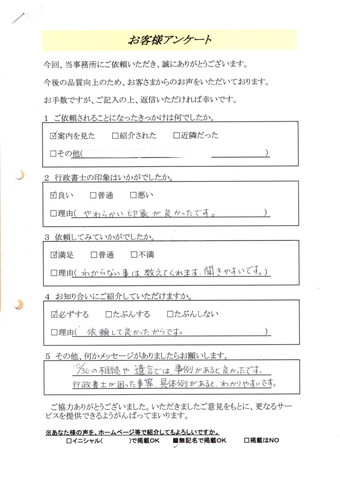 お客様アンケート
今回、当事務所にご依頼いただき、誠にありがとうございます。
今後の品質向上のため、お客さまからのお声をいただいております。
お手数ですが、ご記入の上、返信いただければ幸いです。
1 ご依頼されることになったきっかけは何でしたか。
☑案内を見た □紹介された □近隣だった
□その他( )
2 行政書士の印象はいかがでしたか。
☑良い □普通 □悪い
□理由( やわらかい印象が良かったです。 )
3 依頼してみていかがでしたか。
☑満足 □普通 □不満
□理由( わからない事は教えてくれます、聞きやすいです。 )
4 お知り合いにご紹介していただけますか。
☑必ずする □たぶんする □たぶんしない
□理由( 依頼して良かったからです。 )
5 その他、何かメッセージがありましたらお願いします。
/30の相談や遺言では事例があると良かったです。
行政書士が困った事案、具体例があると、わかりやすいです。
ご協力ありがとうございました。いただきましたご意見をもとに、更なるサー
ビスを提供できるようがんばってまいります。
※あなた様の声を、ホームページ等で紹介してもよろしいですか。
□イニシャル( )で掲載OK ■無記名で掲載OK □掲載はNO